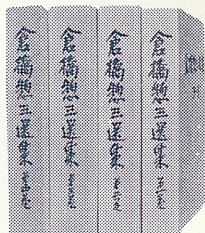 倉橋惣三選集 第一巻
倉橋惣三選集
倉橋惣三選集
倉橋惣三選集